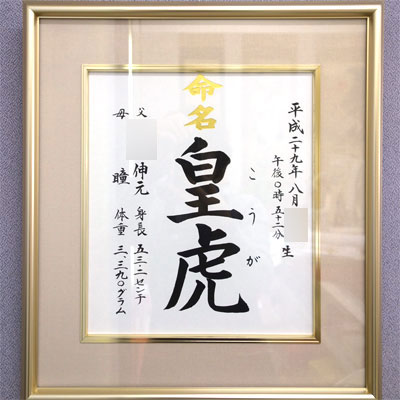 命名
平成二十九年八月
午後〇時五十二分
生
こうが
皇虎
父
伸元
母
瞳
身長 五三.二センチ
体重 三、三九〇グラム